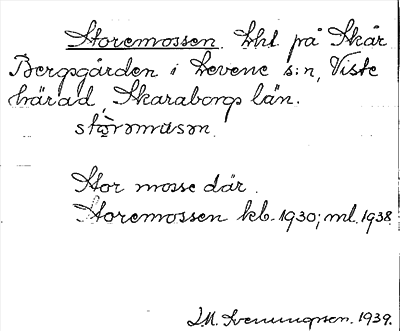 Storemossen. Lht på Skår
Bergsgården i Levene s:n, Viste
härad, Skaraborgs län.
Stor mosse där.
Storemossen kb. 1930; ml. 1938
I.M. Svenungsson. 1939.